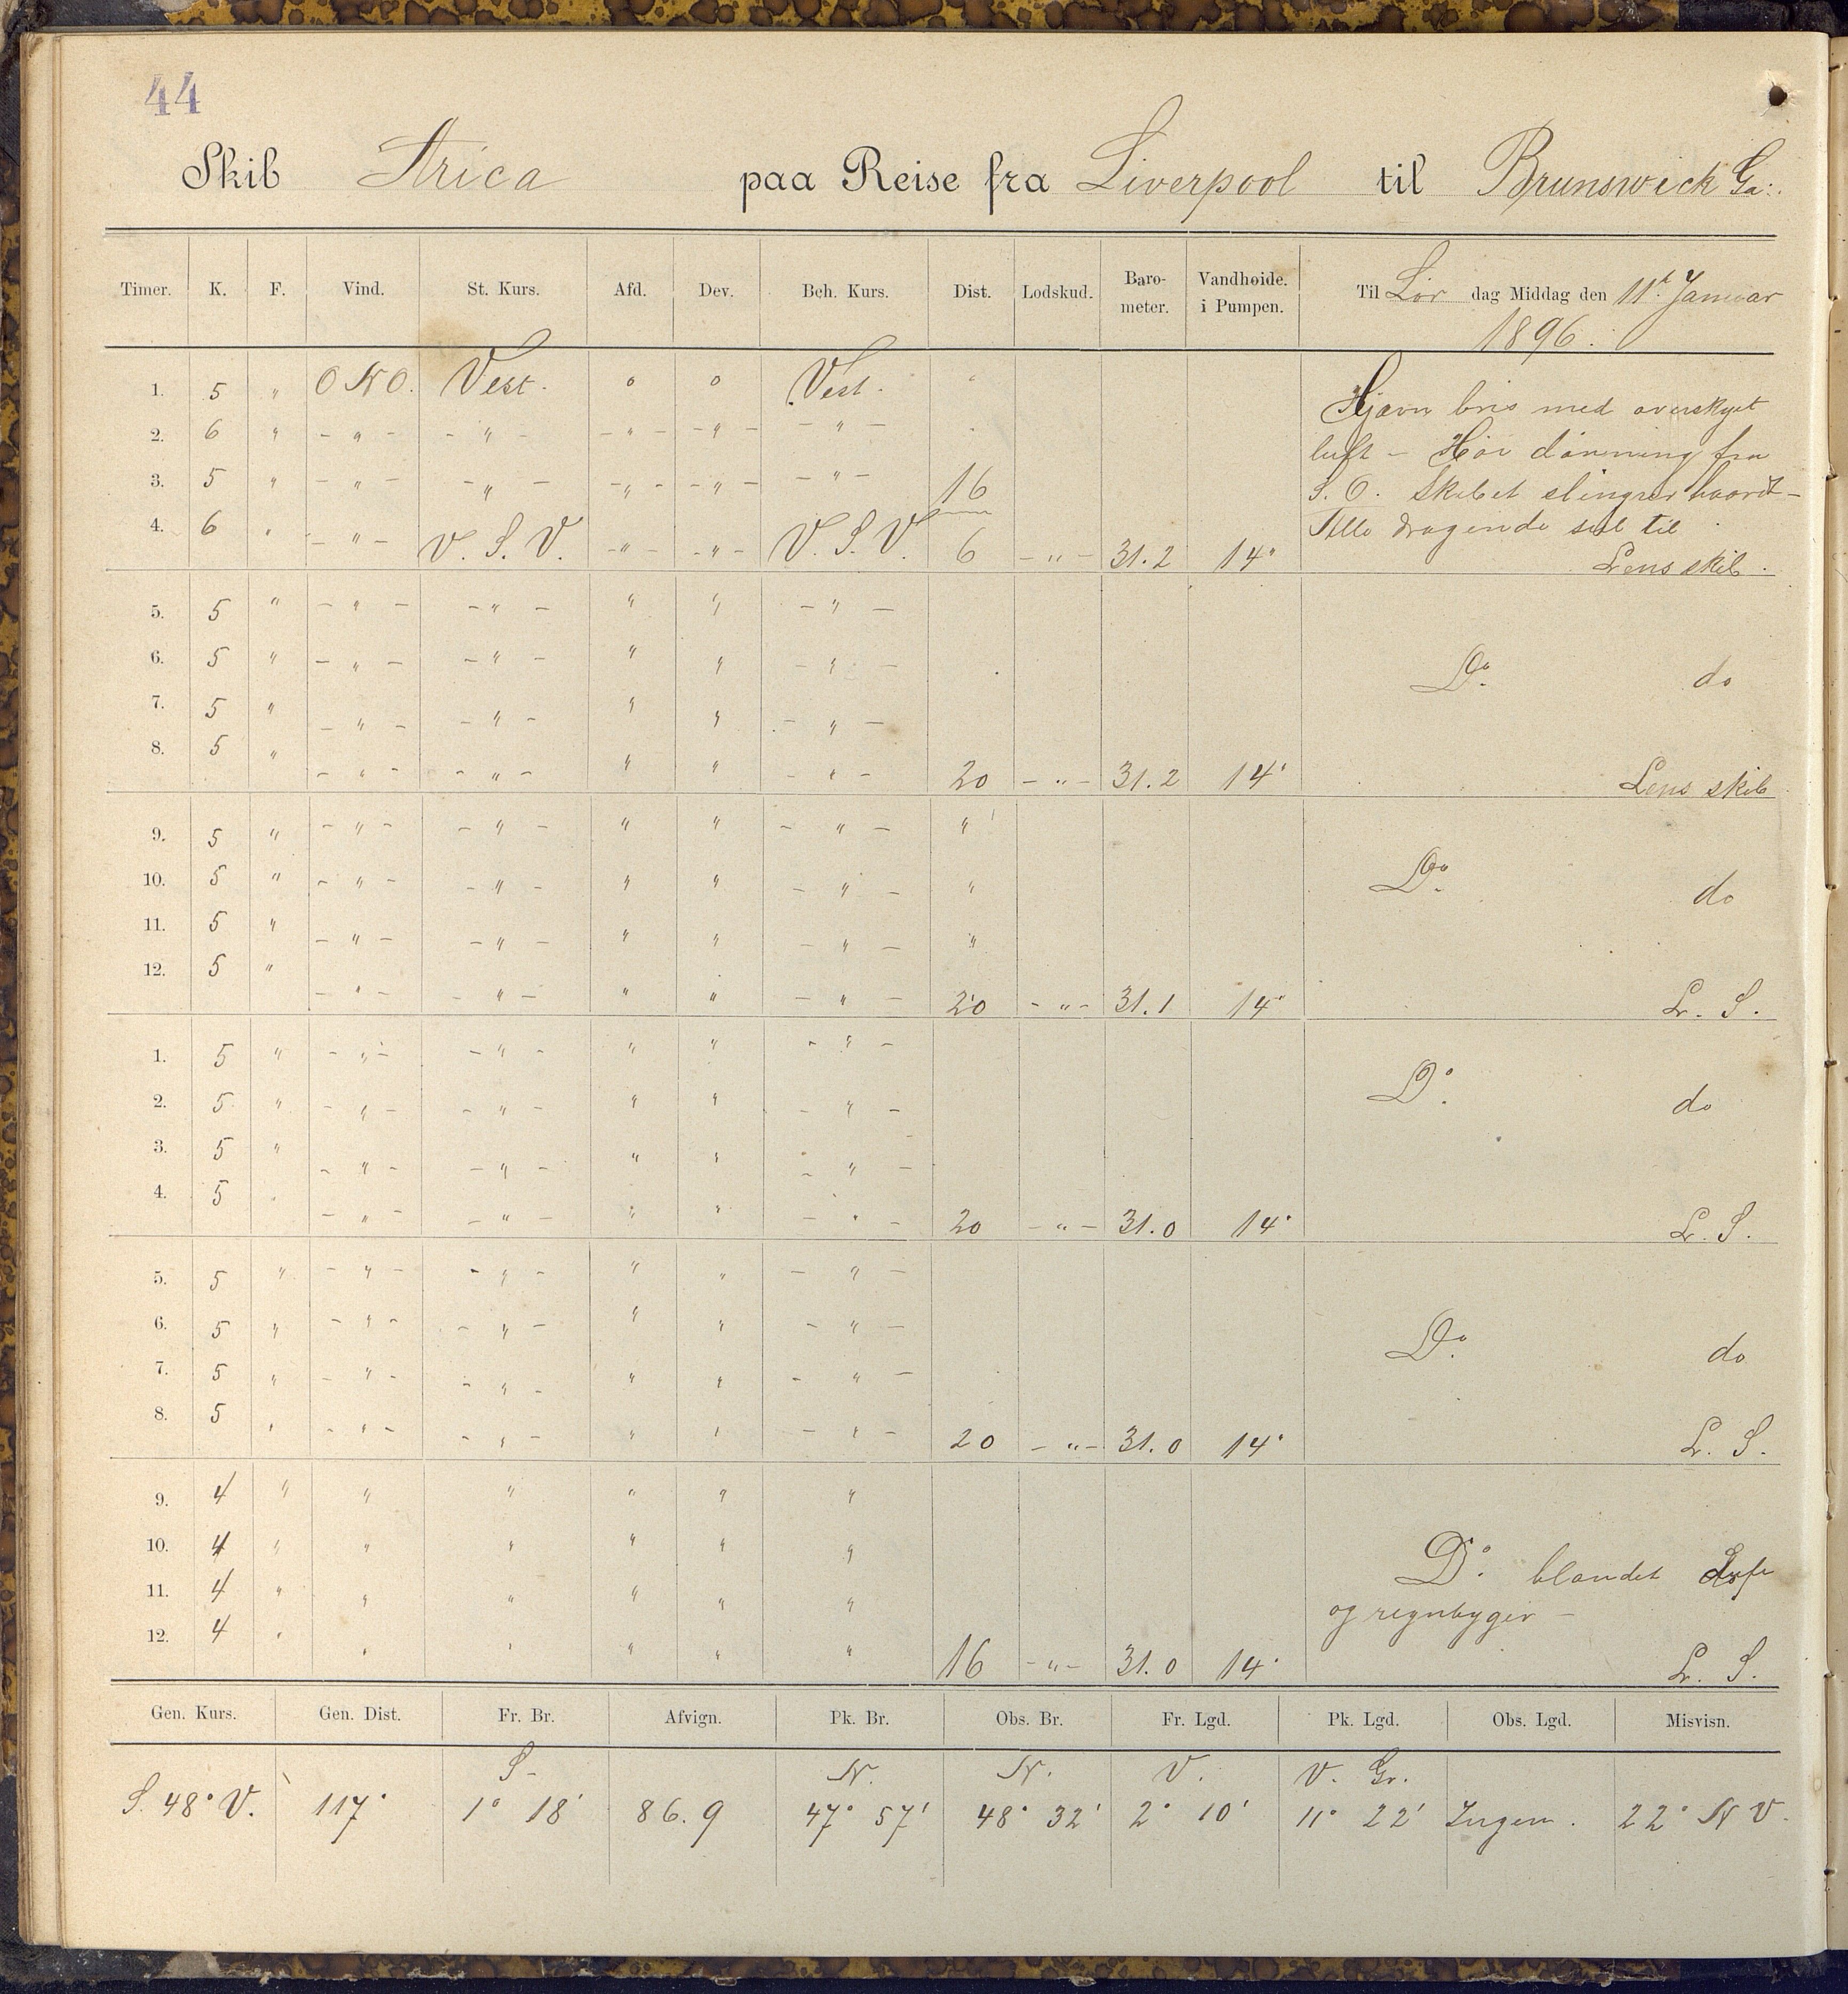 44
Skib Arica paa Reise fra Liverpool til Brunswick Ga:.
Timer. K. F. Vind. St. Kurs. Afd. Dev. Beh. Kurs. Dist. Lodskud. Barometer. Vandhøide. i Pumpen. Til Lör dag Middag den 11t Januar
1896.
1. 5 " O N O. Vest. o o Vest. "
Hjævn bris med overskyet
2. 6 " - " - - " - - " - - " - - " -
luft - Höi dönning fra
3. 5 " - " - - " - - " - - " - - " - 16
S. O. Skibet slingrer haardt -
4. 6 " - " - V. S. V. - " - - " - V. S. V. 6 - " - 31.2 14"
Alle dragende seil til
Lens skib.
5. 5 " - " - - " - " " - " -
6. 5 " - " - - " - " " - " -
Do do
7. 5 " - " - - " - " " - " -
8. 5 " - " - - " - " " - " - 20 - " - 31.2 14"
Lens skib
9. 5 " - " - - " - " " - " - "
10. 5 " - " - - " - " " - " - "
Do do
11. 5 " - " - - " - " " - " - "
12. 5 " - " - - " - " " - " - 20 - " - 31.1 14"
L. S.
1. 5 " - " - - " - " " - " -
2. 5 " - " - - " - " " - " -
Do do
3. 5 " - " - - " - " " - " -
4. 5 " - " - - " - " " - " - 20 - " - 31.0 14"
L. S.
5. 5 " - " - - " - " " - " -
6. 5 " - " - - " - " " - " -
Do do
7. 5 " - " - - " - " " - " -
8. 5 " - " - - " - " " - " - 20 - " - 31.0 14"
L. S.
9. 4 " " " " " "
10. 4 " " " " " "
Do blandet
11. 4 " " " " " "
og regnbyger -
12. 4 " " " " " " 16 - " - 31.0 14"
L. S.
Gen. Kurs. Gen. Dist. Fr. Br. Afvign. Pk. Br. Obs. Br. Fr. Lgd. Pk. Lgd. Obs. Lgd. Misvisn.
S. N. N. V. V. Gr.
S. 48° V. 117' 1° 18' 86.9 47° 57' 48° 32' 2° 10' 11° 22' Ingen. 22° N V.